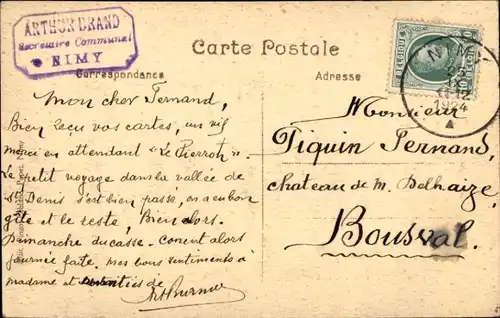 ARTHUR BRAND
Secrétaire Communal
NIMY
Carte Postale
Correspondance
Adresse
BELGIQUE
NIMY
1924
Mon cher Fernand,
Bien reçu vos cartes, un vif
merci en attendant "Le Pierrot".
Le petit voyage dans la vallée de
St Denis s'est bien passé, on a eu bon
gîte et le reste, Bien alors.
Dimanche ducasse. Concert alors
journée faite. Mes bons sentiments à
madame et de
Monsieur
Piquin Fernand,
chateau de M. Delhaize,
Bousval.